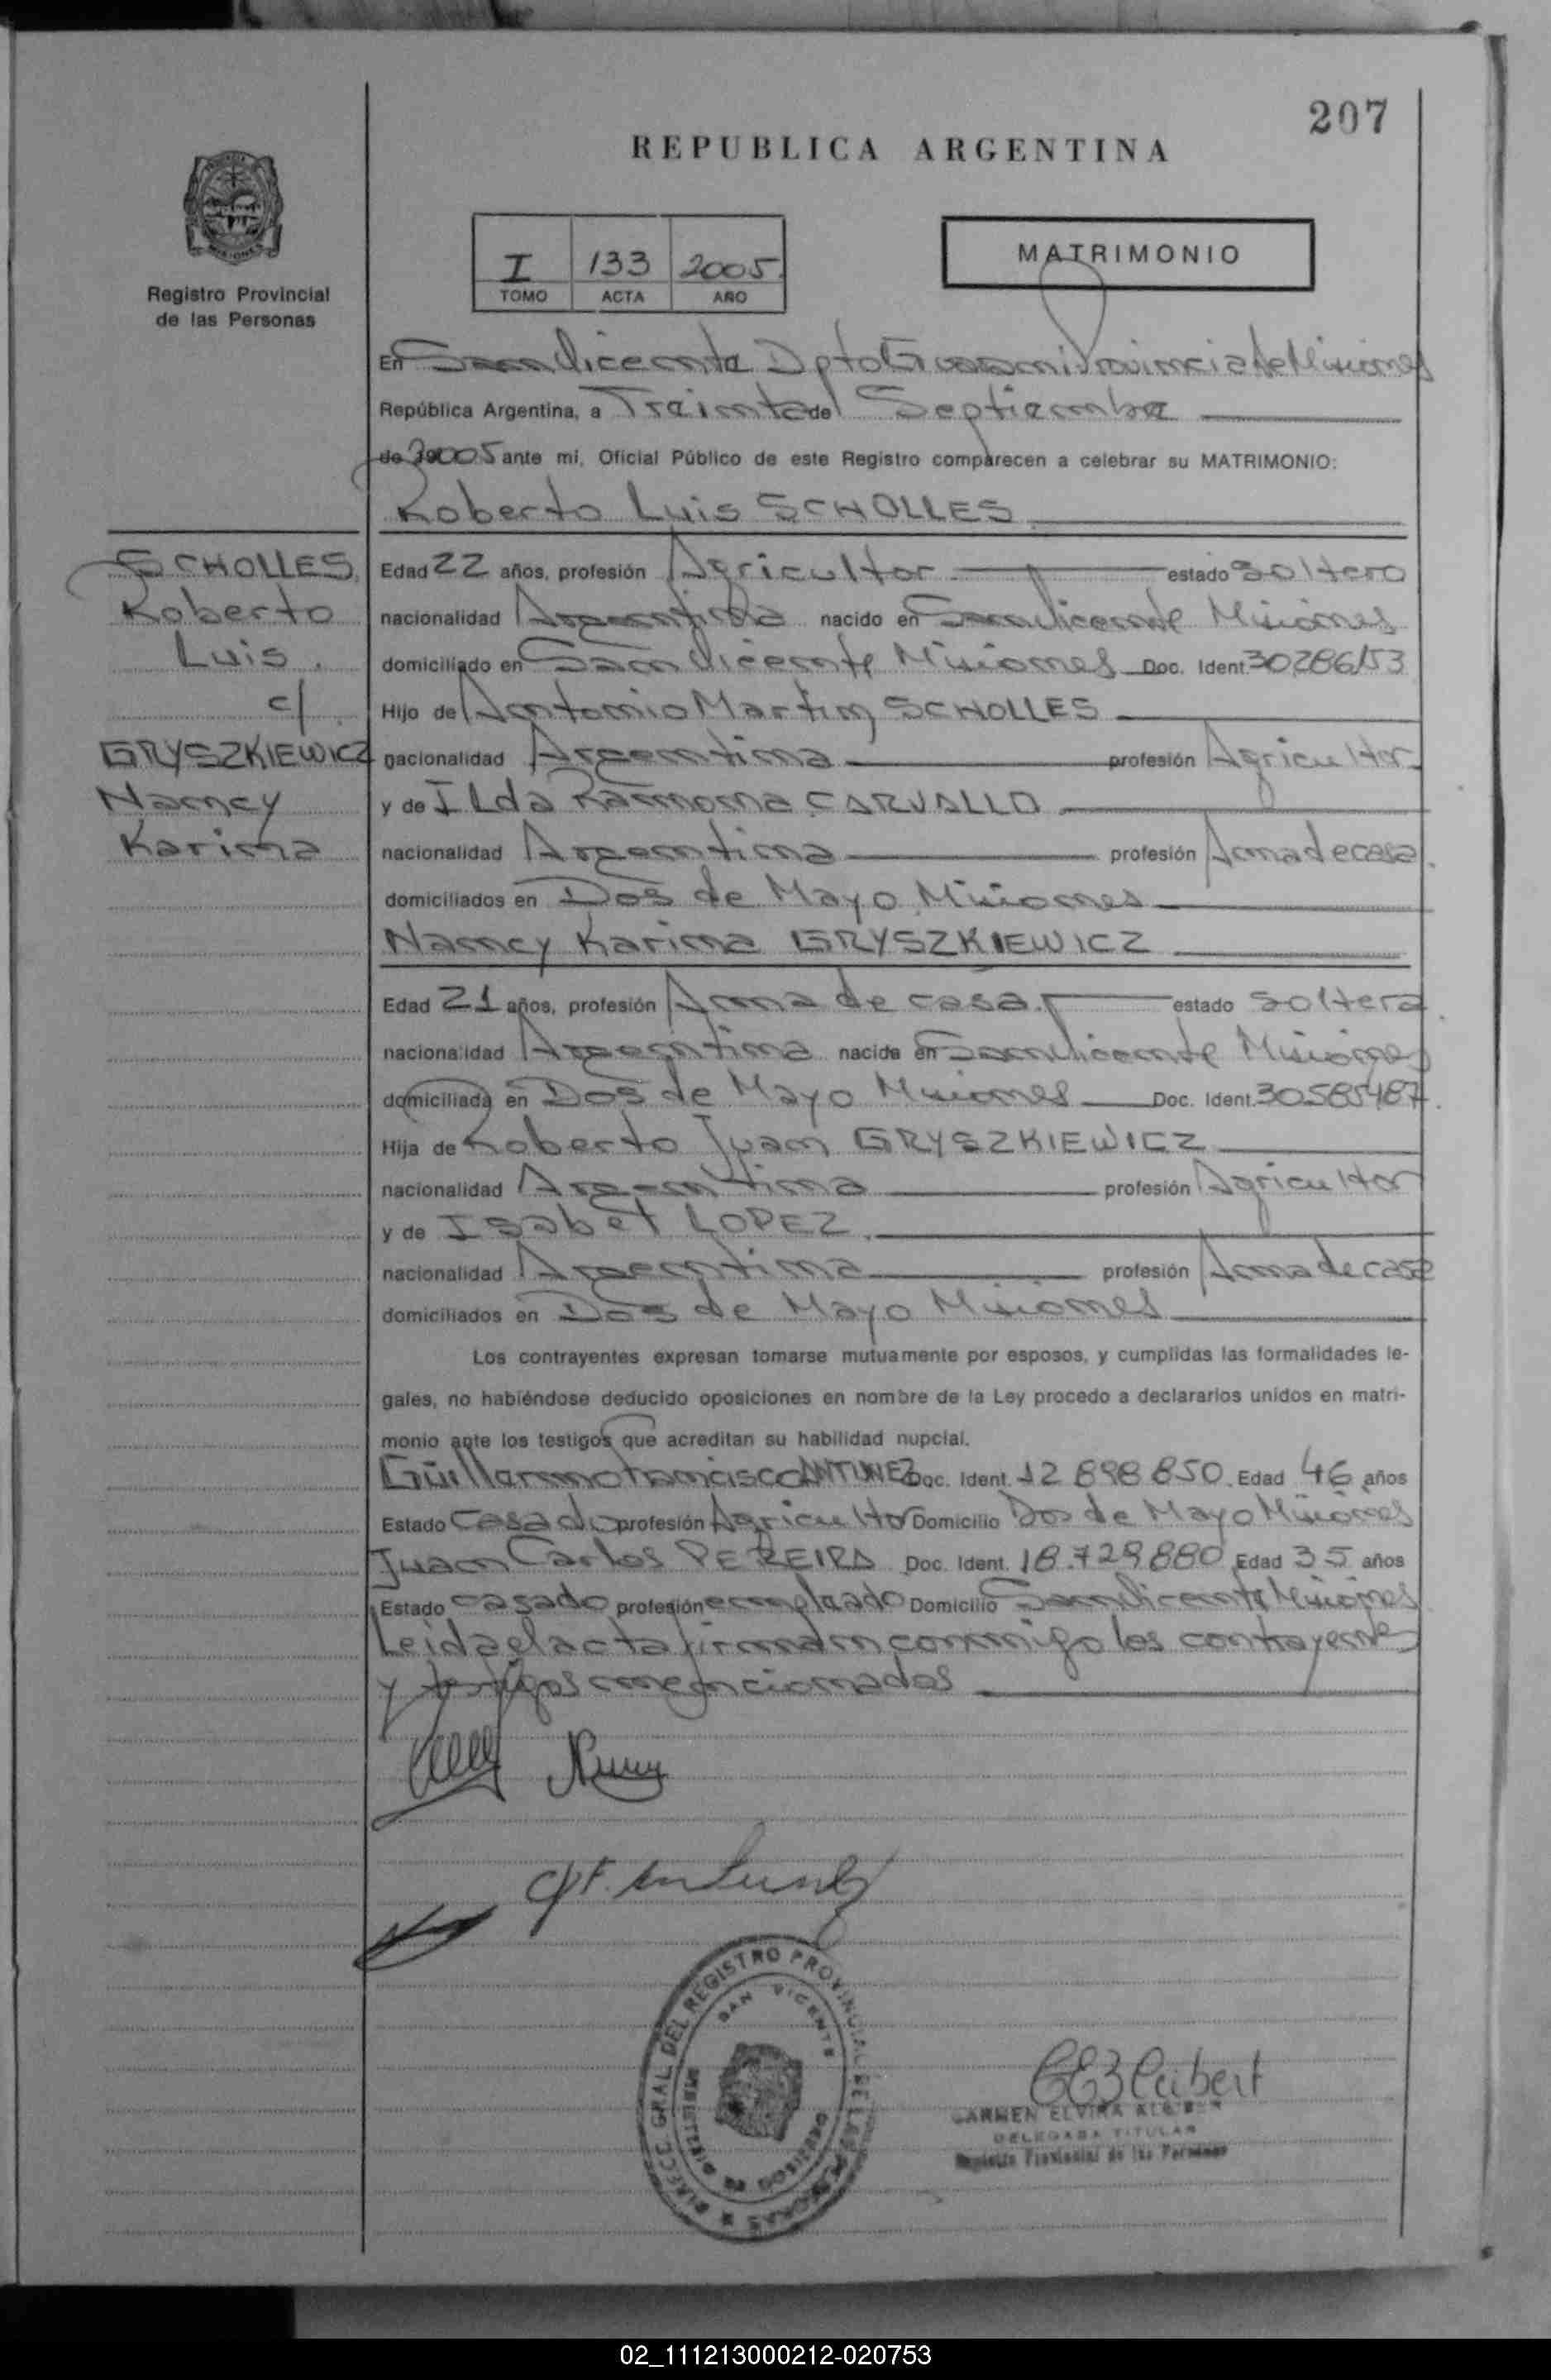 207
REPUBLICA ARGENTINA
I 133 2005
TOMO ACTA AÑO
MATRIMONIO
Registro Provincial
de las Personas
En San Vicente Dpto Guarani Provincia de Misiones
República Argentina, a Treinta de Septiembre
de 2005 ante mi, Oficial Público de este Registro comparecen a celebrar su MATRIMONIO:
Roberto Luis SCHOLLES
SCHOLLES
Roberto
Luis.
c/
GRYSZKIEWICZ
Nancy
Karina
Edad 22 años, profesión Agricultor estado soltero
nacionalidad Argentina nacido en San Vicente Misiones
domiciliado en San Vicente Misiones Doc. Ident. 30286153
Hijo de Antonio Martin SCHOLLES
nacionalidad Argentina profesión Agricultor
y de ILda Ramona CARVALLO
nacionalidad Argentina profesión Ama de casa
domiciliados en Dos de Mayo Misiones
Nancy Karina GRYSZKIEWICZ
Edad 21 años, profesión Ama de casa. estado soltera
nacionalidad Argentina nacida en San Vicente Misiones
domiciliada en Dos de Mayo Misiones Doc. Ident. 30585487
Hija de Roberto Juan GRYSZKIEWICZ
nacionalidad Argentina profesión Agricultor
y de Isabel LOPEZ
nacionalidad Argentina profesión Ama de casa
domiciliados en Dos de Mayo Misiones
Los contrayentes expresan tomarse mutuamente por esposos, y cumplidas las formalidades le-
gales, no habiéndose deducido oposiciones en nombre de la Ley procedo a declararlos unidos en matri-
monio ante los testigos que acreditan su habilidad nupcial.
Guillermo Francisco ANTUNEZ Doc. Ident. 12 898 850. Edad 46 años
Estado Casado profesión Agricultor Domicilio Dos de Mayo Misiones
Juan Carlos PEREIRA Doc. Ident. 18.729.880 Edad 35 años
Estado casado profesión empleado Domicilio San Vicente Misiones
Leida el acta firman conmigo los contrayentes
y testigos mencionados
DIRECC. GRAL. DEL REGISTRO PROVINCIAL DE LAS PERSONAS
SAN VICENTE
CARMEN ELVIRA
DELEGADA TITULAR
Registro Provincial de las Personas
02_111213000212-020753